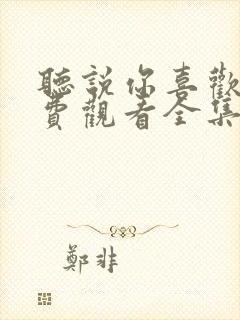 聽說你喜歡
費觀看全集
鄭非